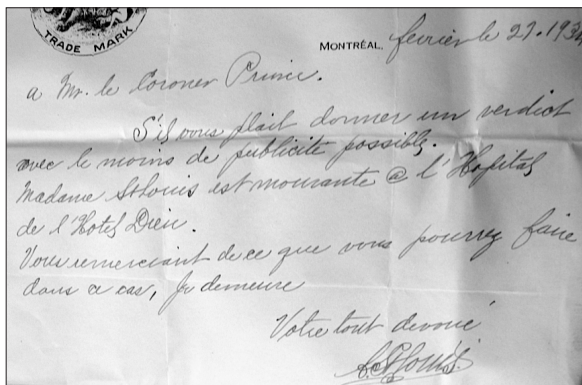 TRADE MARK
MONTRÉAL, fevrier le 27. 193
a Mr. le Coroner Prince.
S'il vous plait donner un verdict
avec le moins de publicité possible.
Madame St Louis est mourante @ l'Hopital
de l'Hotel Dieu.
Vous remerciant de ce que vous pourrez faire
dans ce cas, je demeure
Votre tout devoué
St Louis